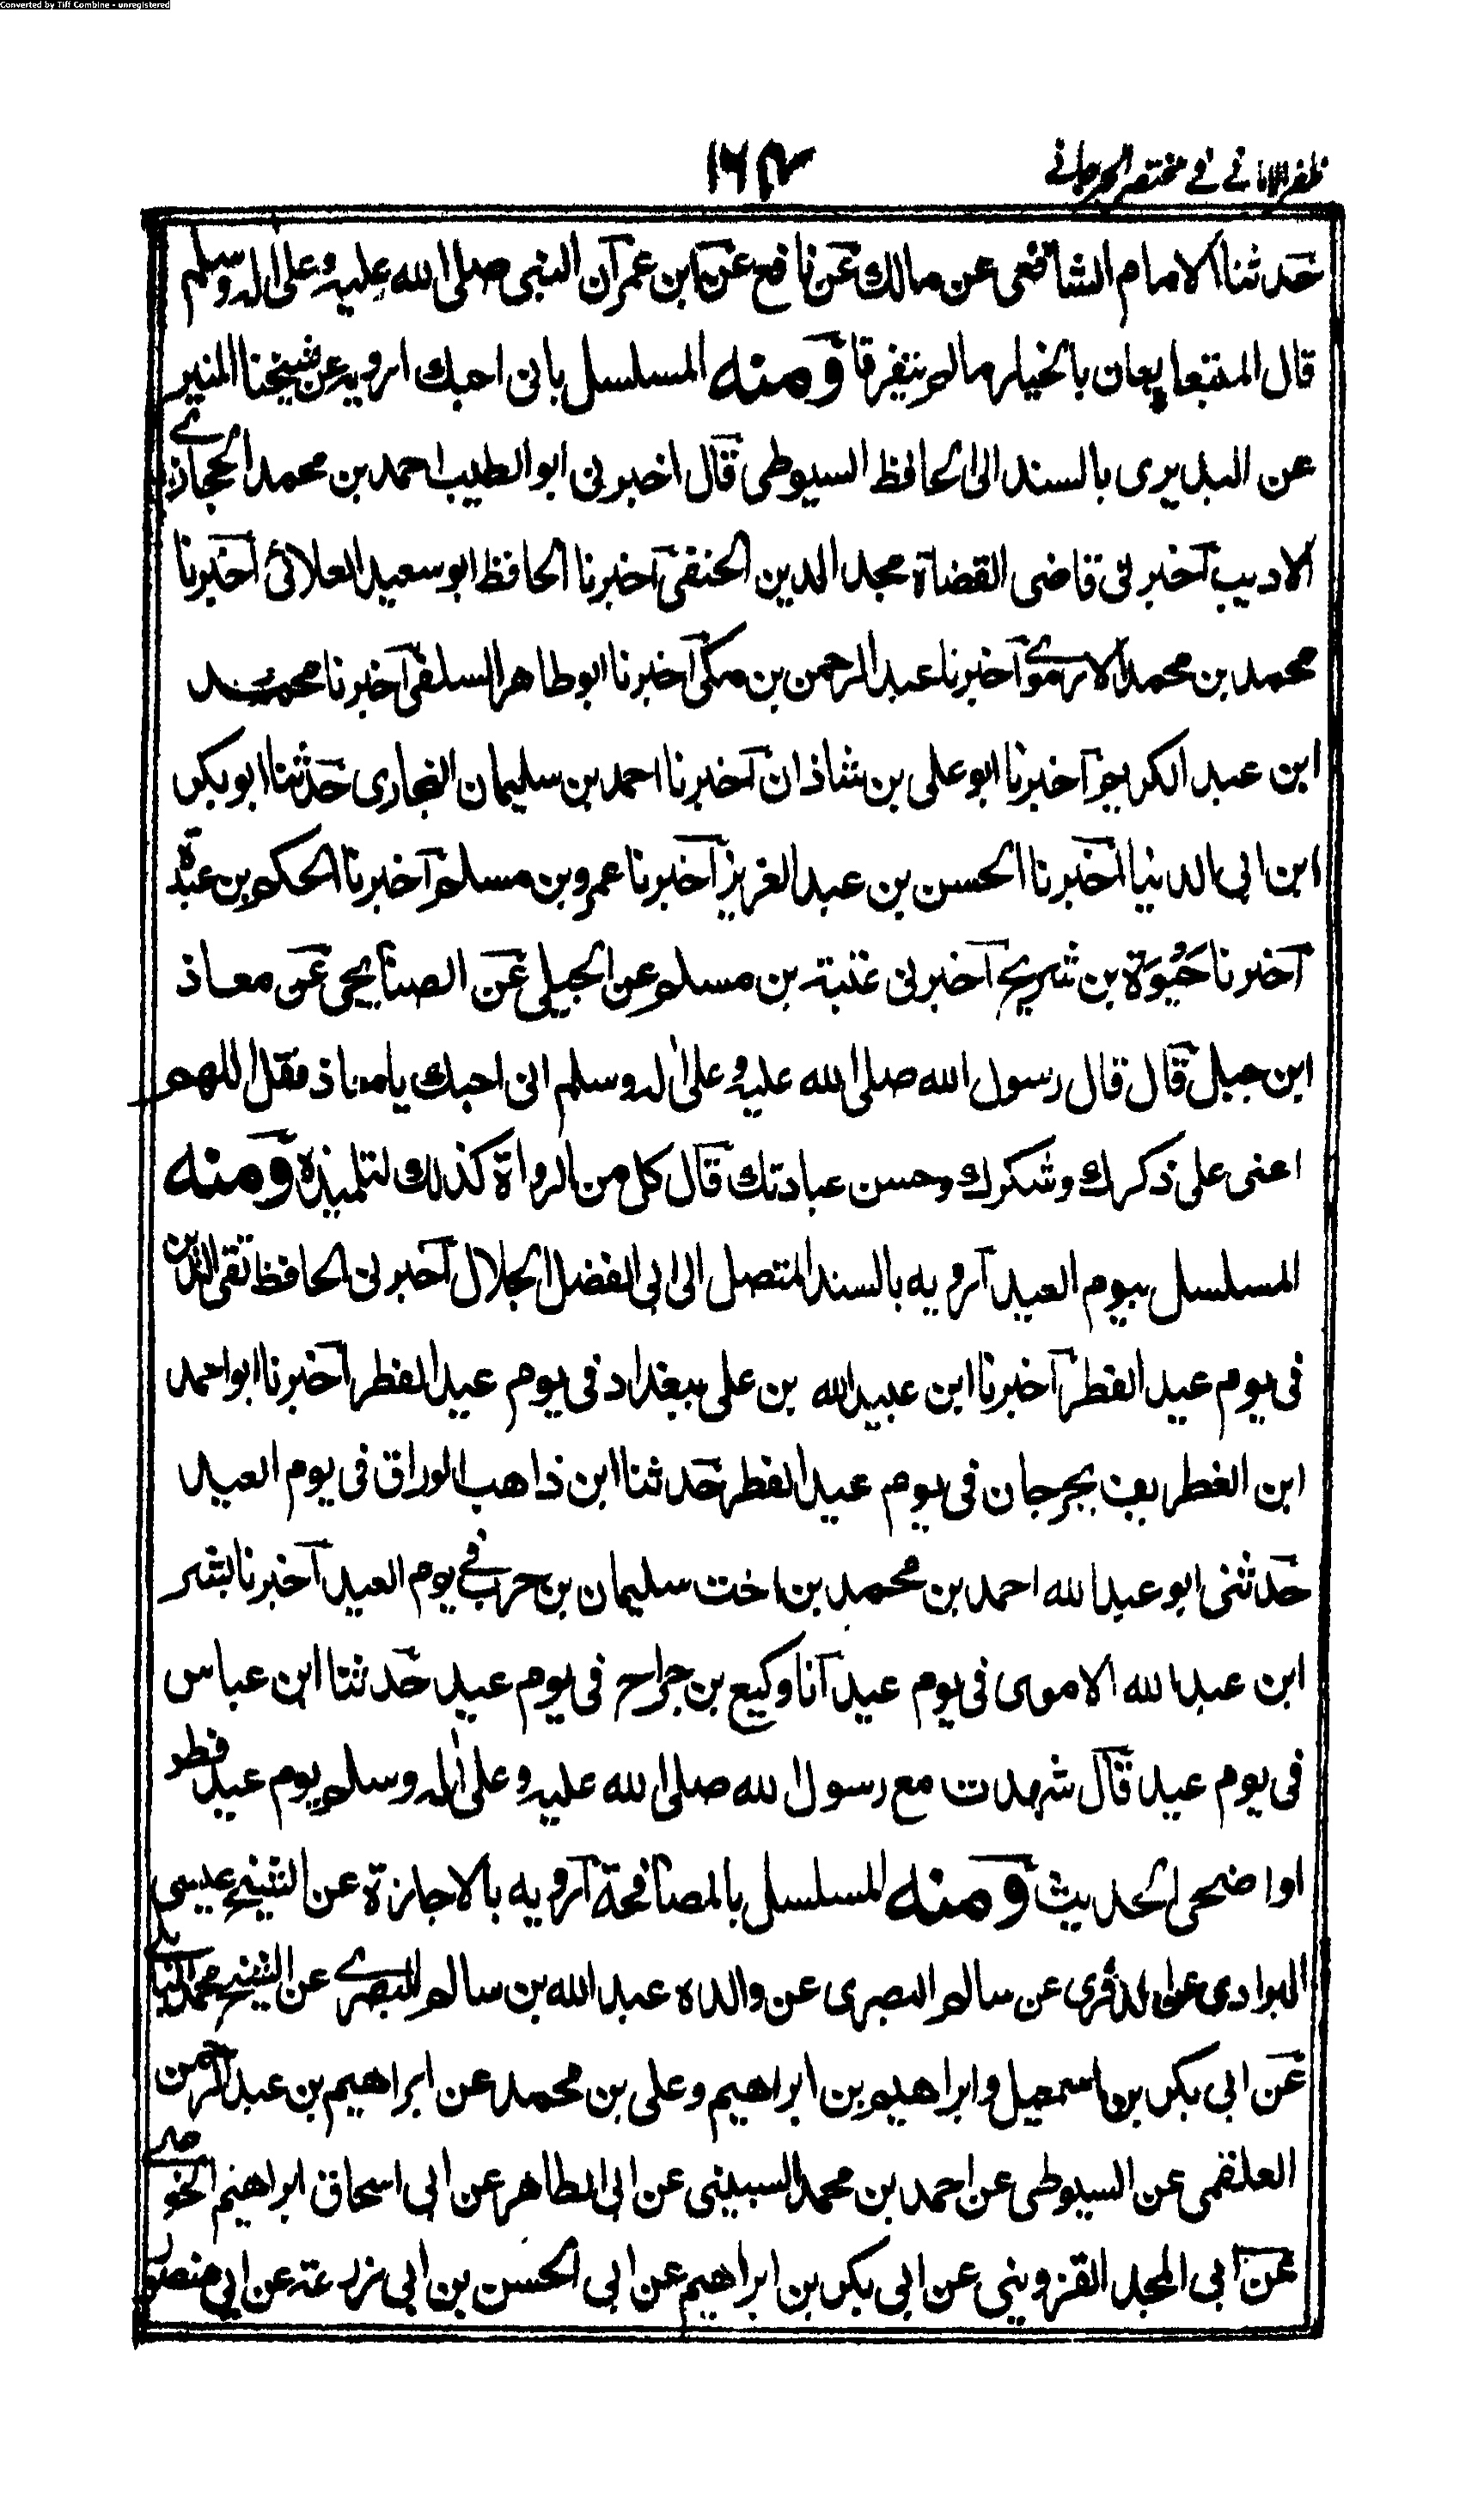 Converted by Tiff Combine - unregistered
ظفر الامانی فی مختصر الجرجانی
١٦٣
حدثنا الامام الشافعی عن مالك عن نافع عن ابن عمر ان النبی صلی الله علیه و علی اله وسلم
قال المتبعا یعان بالخیار مالم یتفرقا ومنه المسلسل بانی احبك ارویه عن شیخنا المنیر
عن البدیری بالسند الی الحافظ السیوطی قال اخبرنی ابو الطیب احمد بن محمد الحجازی
الادیب اخبرنی قاضی القضاة مجد الدین الحنفی اخبرنا الحافظ ابو سعید العلائی اخبرنا
محمد بن محمد الارموی اخبرنا عبد الرحمن بن مکی اخبرنا ابو طاهر السلفی اخبرنا محمد
ابن عبد الکریم اخبرنا ابو علی بن شاذان اخبرنا احمد بن سلیمان النجاری حدثنا ابو بکر
ابن ابی الدنیا اخبرنا الحسن بن عبد العزیز اخبرنا عمرو بن مسلم اخبرنا الحکم بن عبدة
اخبرنا حیوة بن شریح اخبرنی عتبة بن مسلم عن الجبلی عن الصنابحی عن معاذ
ابن جبل قال قال رسول الله صلی الله علیه و علی اله وسلم انی احبك یا معاذ فقل اللهم
اعنی علی ذکرك وشکرك وحسن عبادتك قال کل من الرواة کذلك لتلمیذه ومنه
المسلسل بیوم العید ارویه بالسند المتصل الی ابی الفضل الجلال اخبرنی الحافظ تقی الدین
فی یوم عید الفطر اخبرنا ابن عبید الله بن علی ببغداد فی یوم عید الفطر اخبرنا ابو احمد
ابن الغطریف بجرجان فی یوم عید الفطر حدثنا ابن ذاهب الوراق فی یوم العید
حدثنی ابو عبد الله احمد بن محمد بن اخت سلیمان بن حرب فی یوم العید اخبرنا بشر
ابن عبد الله الاموی فی یوم عید انا وکیع بن جراح فی یوم عید حدثنا ابن عباس
فی یوم عید قال شهدت مع رسول الله صلی الله علیه و علی اله وسلم یوم عید فطر
او اضحی الحدیث ومنه المسلسل بالمصافحة ارویه بالاجازة عن الشیخ عیسی
البوادی عن سالم البصری عن والده عبد الله بن سالم البصری عن الشیخ محمد
عن ابی بکر بن اسمعیل وابراهیم بن ابراهیم وعلی بن محمد عن ابراهیم بن عبد الرحمن
العلقمی عن السیوطی عن احمد بن محمد السبینی عن ابی الطاهر عن ابی اسحاق ابراهیم
عن ابی المجد القزوینی عن ابی بکر بن ابراهیم عن ابی الحسن بن ابی زرعة عن ابی منصور